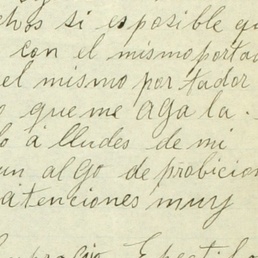 chos si es posible qu
con el mismo portad
el mismo portador
que me aga la.
lo á lludes de mi
un algo de probicion
atenciones muy